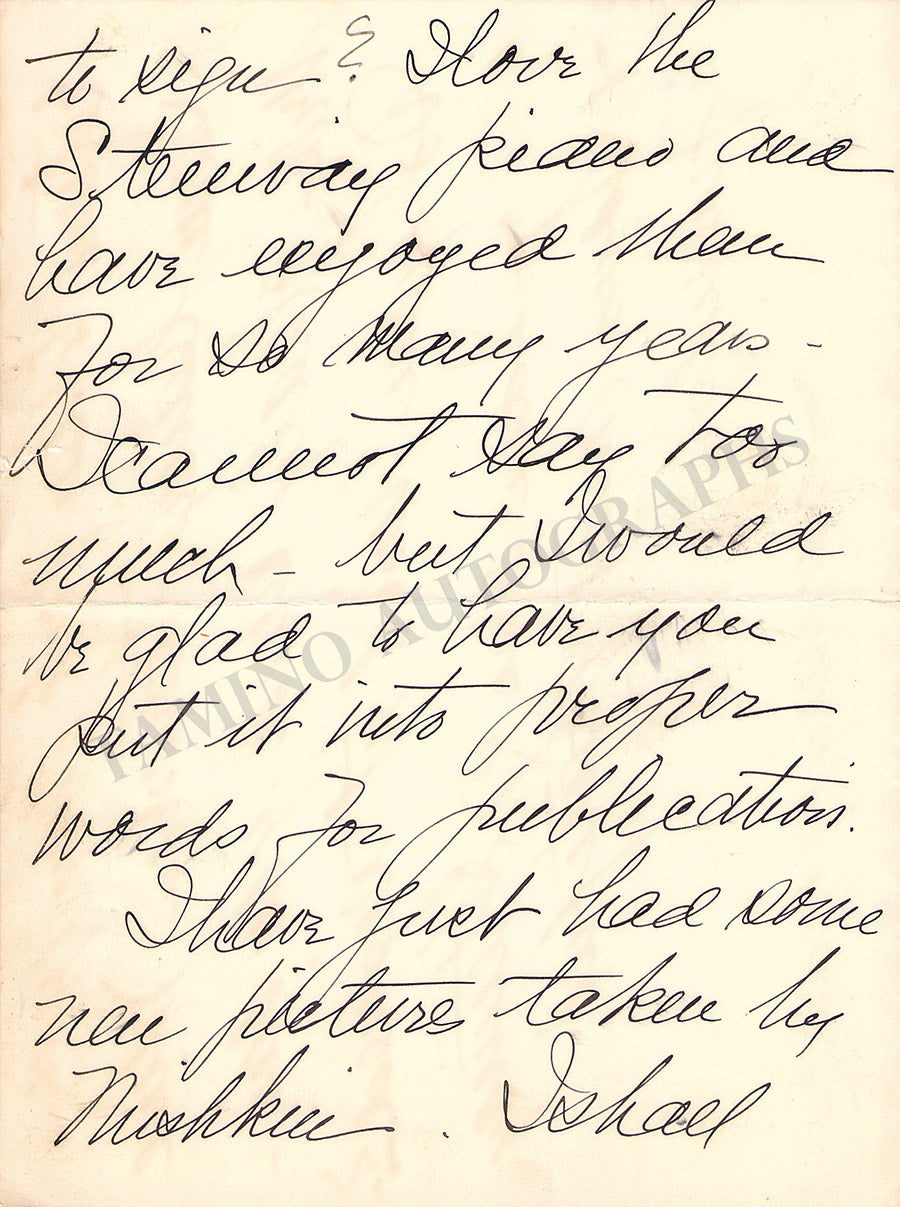 to sign? I love the
Steinway piano and
have enjoyed them
for so many years -
I cannot say too
much - but I would
be glad to have you
put it into proper
words for publication.
I have just had some
new pictures taken by
Mishkin. I shall
TAMINO AUTOGRAPHS